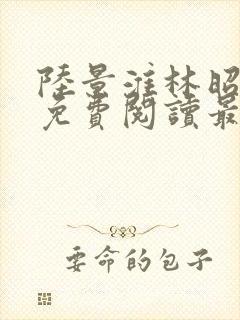 陸景淮林昭
免費閱讀最
要命的包子